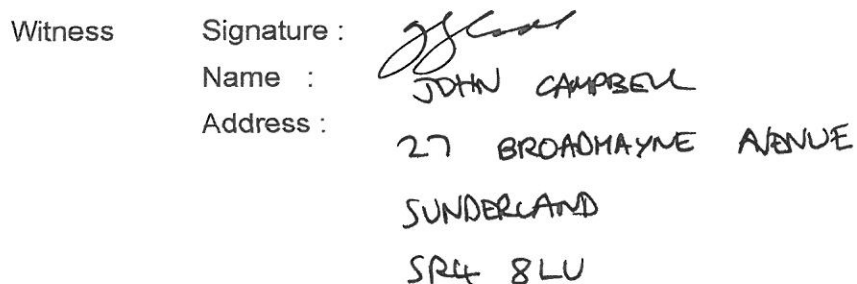 Witness Signature :
Name : JOHN CAMPBELL
Address :
27 BROADMAYNE AVENUE
SUNDERLAND
SR4 8LU